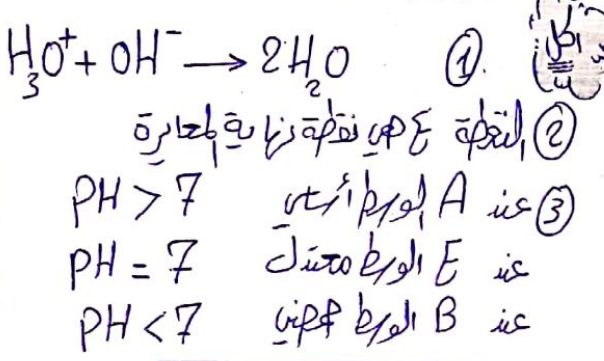 الحل
① H₃O⁺ + OH⁻ → 2H₂O
② النقطة E هي نقطة نهاية المعايرة
③ عند A الوسط أساسي PH > 7
عند E الوسط معتدل PH = 7
عند B الوسط حمضي PH < 7